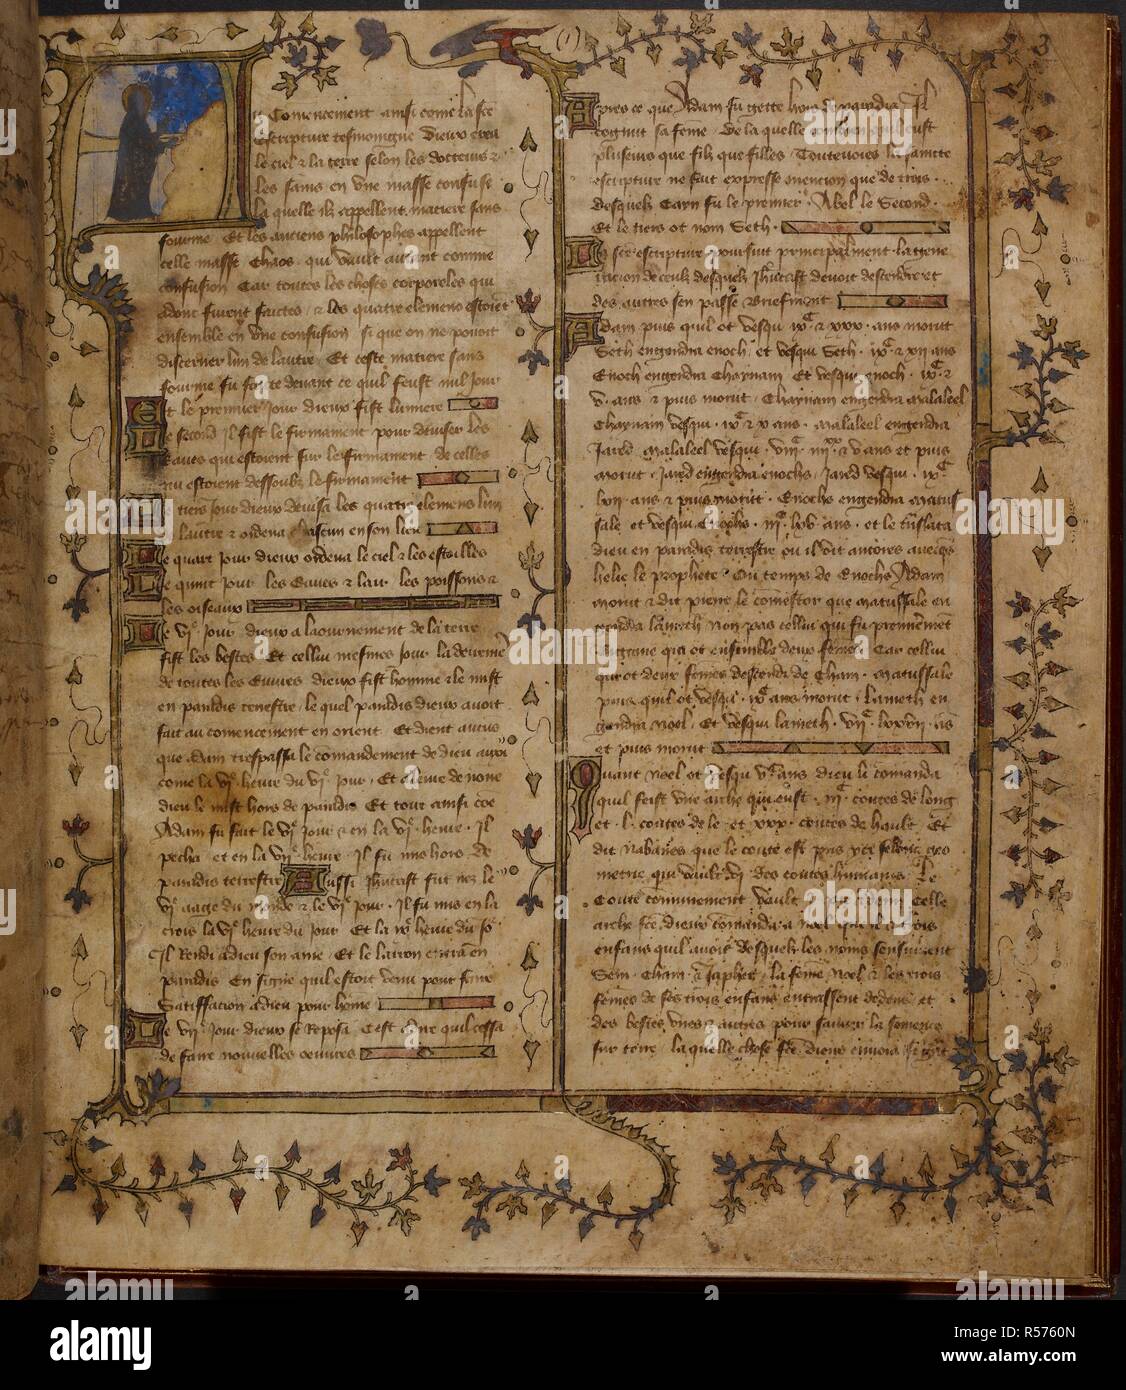 3
u Comencement ainsi come la ste
Escripture tesmoingne Dieux crea
le ciel & la terre selon les docteurs &
les sains en vne masse confuse
la quelle ilz appellent matiere sans
fourme Et les anciens philosophes appellent
celle masse Chaos qui vault autant comme
confusion Car toutes les choses corporeles qui
donc furent faictes & les quatre elemens estoient
ensemble en vne confusion si que on ne pouoit
discerner lun de lautre Et ceste matiere sans
fourme fu devant ce quil feust nul jour
Et le premier jour dieux fist lumiere
Le second il fist le firmament pour deuiser les
Eaues qui estoient sur le firmament de celles
qui estoient dessoubz le firmament
Le tiers jour dieux deuisa les quatre elemens lun
de lautre & ordena chascun en son lieu
Le quart jour dieux ordena le ciel & les estoilles
Le quint jour les Eaues & lair les poissons &
les oiseaux
Le vje jour dieux a laournement de la terre
fist les bestes Et cellui mesmes jour la derreniere
de toutes les Euures dieux fist homme & le mist
en paradis terrestre le quel paradis dieux auoit
fait au comencement en orient Et dient aucus
que adam trespassa le comandement de dieu aussi
come la vje heure du vje jour Et a leure de none
dieu le mist hors de paradis Et tout ainsi coe
Adam fu fait le vje jour & en la vje heure Il
pecha et en la heure Il fu mis hors de
paradis terrestre Aussi Jhucrist fut nez le
vje aage du monde & le vje jour Il fu mis en la
crois la vje heure du jour Et la heure du
Il Rendi a dieu son ame Et le larron entra en
paradis En signe quil estoit venu pour faire
Satiffacion a dieu pour home
Le vije jour dieux se Reposa Cest a dire quil cessa
de faire nouuelles oeuures
Apres ce que Adam fu gette hors de paradis Il
congnut sa feme De la quelle combien quil eust
plusieurs que filz que filles Toutevoies la saincte
escripture ne fait expresse mencion que de trois
desquelz Cayn fu le premier Abel le Second
Et le tiers ot nom Seth
La ste escripture poursuit principalment la gene
racion de ceulz desquelz Jhucrist deuoit descendre et
des autres sen passe briefment
Adam puis quil ot vesqu ixc & xxx ans morut
Seth engendra enoch et vesqui Seth ixc & xij ans
Enoch engendra Chaynam Et vesqui enoch ixc &
v ans & puis morut Chaynam engendra malaleel
Chaynam vesqui ixc & x ans malaleel engendra
Jared malaleel vesqui viijc iiijxx & v ans et puis
morut Jared engendra enochs Jared vesqui ixc
lxij ans & puis morut Enochs engendra matus
sale et vesqui Enochs iijc lxv ans et le tuslata
dieu en paradis terrestre ou il vit ancores auecques
helie le prophete Ou temps de Enochs Adam
morut & dit pierre le comestor que matussale en
gendra lameth non pas cellui qui fu premieremet
qui ot ensemble deux femes Car cellui
qui ot deux femes descendi de Cham matussale
puis quil ot vesqu ixc ans morut Lameth en
gendra Noel Et vesqui lameth vijc lxxvij as
et puis morut
Quant Noel ot vesqu vc ans dieu li comanda
quil feist vne arche qui eust iijc coutes de long
et l coutes de le et xxx coutes de hault Et
dit Rabanes que le coute est pris selonc
metrie qui vault vj des coutes humains Le
Coute communement vault Celle
arche fce dieux comanda a noel trois
enfans quil auoit desquelz les noms sensuiuent
Sem Cham & Japhet la feme Noel & les trois
femes de ses trois enfans entrassent dedens et
des bestes vnes & autres pour sauuer la semence
sur terre laquelle chose fce dieux enuoia si grat
alamy
Image ID: R5760N
www.alamy.com